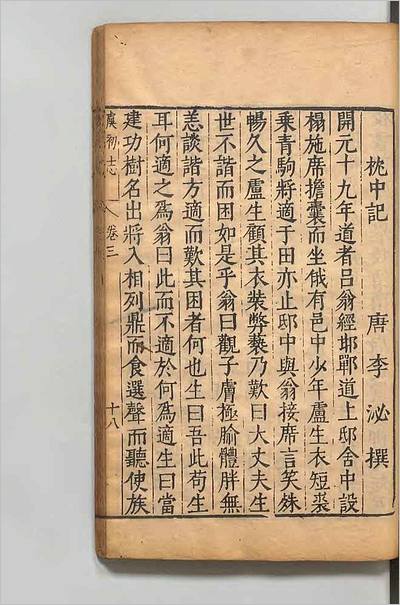 枕中記 唐李泌撰
開元十九年道者呂翁經邯鄲道上邸舍中設
榻施席擔囊而坐俄有邑中少年盧生衣短裘
乘青駒將適于田亦止邸中與翁接席言笑殊
暢久之盧生顧其衣裝弊褻乃歎曰大丈夫生
世不諧而困如是乎翁曰觀子膚極腧體胖無
恙談諧方適而歎其困者何也生曰吾此苟生
耳何適之爲翁曰此而不適於何爲適生曰當
建功樹名出將入相列鼎而食選聲而聽使族
虞初志 卷三 十八